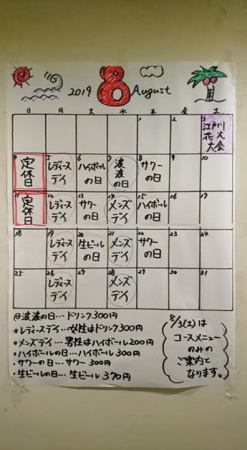 2019 8 August
日 月 火 水 木 金 土
1 2 3
江戸川
花火
大会
4 5 6 7 8 9 10
定休日 レディースデイ ハイボールの日 波波の日 サワーの日
11 12 13 14 15 16 17
定休日 レディースデイ ハイボールの日 メンズデイ サワーの日
18 19 20 21 22 23 24
レディースデイ 生ビールの日 メンズデイ サワーの日
25 26 27 28 29 30 31
レディースデイ メンズデイ
@波波の日…ドリンク300円
・レディースデイ…女性はドリンク300円
・メンズデイ…男性はハイボール200円
・ハイボールの日…ハイボール300円
・サワーの日…サワー300円
・生ビールの日…生ビール370円
8/3(土)は
コースメニュー
のみの
ご案内と
なります。